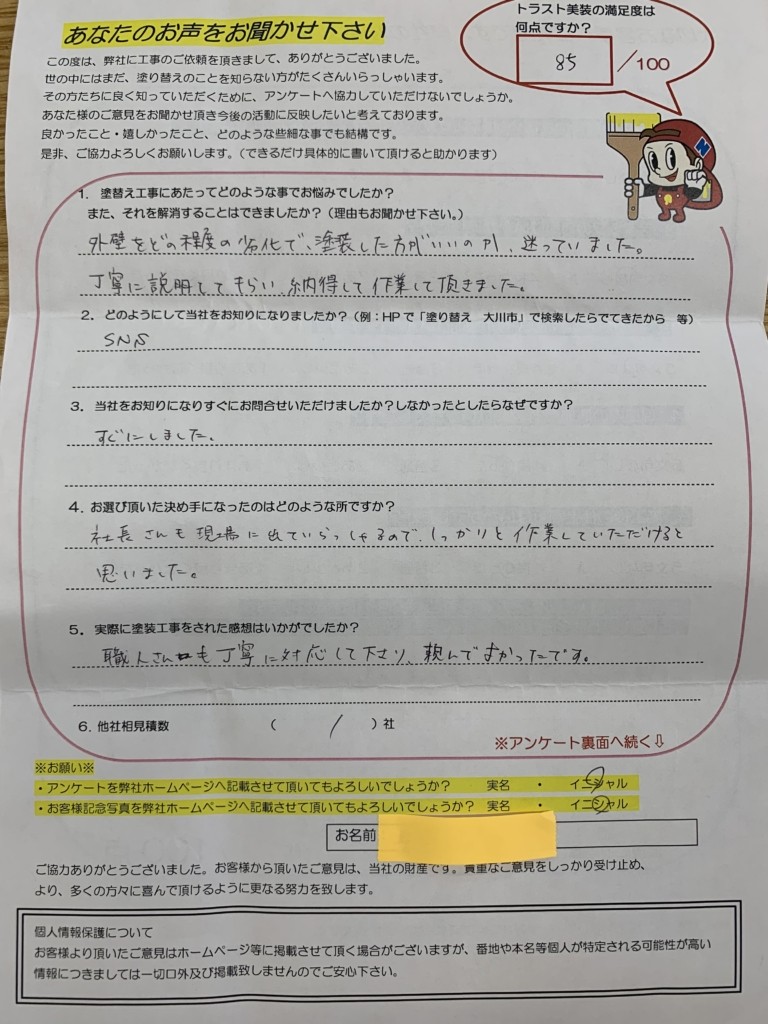 あなたのお声をお聞かせ下さい
トラスト美装の満足度は
何点ですか？
85 /100
この度は、弊社に工事のご依頼を頂きまして、ありがとうございました。
世の中にはまだ、塗り替えのことを知らない方がたくさんいらっしゃいます。
その方たちに良く知っていただくために、アンケートへ協力していただけないでしょうか。
あなた様のご意見をお聞かせ頂き今後の活動に反映したいと考えております。
良かったこと・嬉しかったこと、どのような些細な事でも結構です。
是非、ご協力よろしくお願いします。（できるだけ具体的に書いて頂けると助かります）
N
1. 塗替え工事にあたってどのような事でお悩みでしたか？
また、それを解消することはできましたか？（理由もお聞かせ下さい。）
外壁をどの程度の劣化で、塗装した方がいいのか、迷っていました。
丁寧に説明してもらい、納得して作業して頂きました。
2. どのようにして当社をお知りになりましたか？（例：HPで「塗り替え 大川市」で検索したらでてきたから 等）
SNS
3. 当社をお知りになりすぐにお問合せいただけましたか？しなかったとしたらなぜですか？
すぐにしました。
4. お選び頂いた決め手になったのはどのような所ですか？
社長さんも現場に出ていらっしゃるので、しっかりと作業していただけると
思いました。
5. 実際に塗装工事をされた感想はいかがでしたか？
職人さんも丁寧に対応して下さり、頼んでよかったです。
6. 他社相見積数 （ / ）社
※アンケート裏面へ続く⇩
※お願い※
・アンケートを弊社ホームページへ記載させて頂いてもよろしいでしょうか？ 実名 ・ イニシャル
・お客様記念写真を弊社ホームページへ記載させて頂いてもよろしいでしょうか？ 実名 ・ イニシャル
お名前
ご協力ありがとうございました。お客様から頂いたご意見は、当社の財産です。貴重なご意見をしっかり受け止め、
より、多くの方々に喜んで頂けるように更なる努力を致します。
個人情報保護について
お客様より頂いたご意見はホームページ等に掲載させて頂く場合がございますが、番地や本名等個人が特定される可能性が高い
情報につきましては一切口外及び掲載致しませんのでご安心下さい。